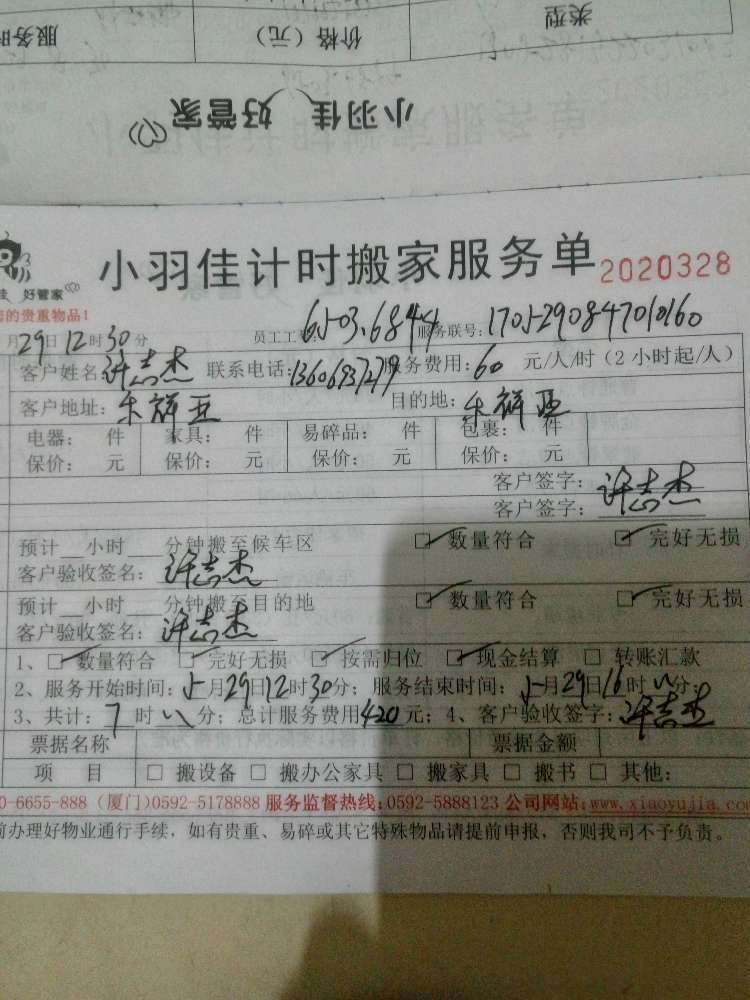 类型
价格（元）
服务时
小羽佳 好管家
小羽佳计时搬家服务单 2020328
好管家
的贵重物品!
月29日12时30分 员工工号: 6503.6844 服务联号: 1705290847010160
客户姓名: 许志杰 联系电话: 13606937279 服务费用: 60 元/人/时（2小时起/人）
客户地址: 乐祥亚 目的地: 乐祥亚
电器: 件 家具: 件 易碎品: 件 包裹: 件
保价: 元 保价: 元 保价: 元 保价: 元
客户签字: 许志杰
客户签字:
预计__小时___分钟搬至候车区 ☑ 数量符合 ☑ 完好无损
客户验收签名: 许志杰
预计__小时___分钟搬至目的地 ☑ 数量符合 ☑ 完好无损
客户验收签名: 许志杰
1、☑ 数量符合 ☑ 完好无损 ☑ 按需归位 ☑ 现金结算 □ 转账汇款
2、服务开始时间: 5月29日12时30分; 服务结束时间: 5月29日16时00分;
3、共计: 7时00分; 总计服务费用420元; 4、客户验收签字: 许志杰
票据名称 票据金额
项 目 □ 搬设备 □ 搬办公家具 □ 搬家具 □ 搬书 □ 其他:
0-6655-888 (厦门)0592-5178888 服务监督热线:0592-5888123 公司网站:www.xiaoyujia.com
前办理好物业通行手续，如有贵重、易碎或其它特殊物品请提前申报，否则我司不予负责。